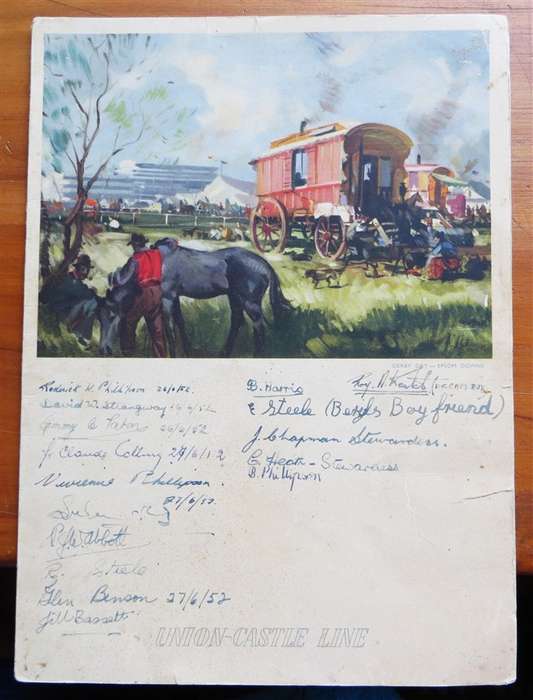 DERBY DAY — EPSOM DOWNS
Roderick H. Phillipson 26/6/52.
David W. Strangway 26/6/52
26/6/52
Claude Collins 27/6/52
Vivienne Phillipson.
27/6/52.
Abbott
R. Steele
Glen Benson 27/6/52
Jill Bassett
B. Harris Roy. A.
& Steele (Beryls Boy friend)
J. Chapman Stewardess.
E. Heath - Stewardess
B. Phillipson
UNION-CASTLE LINE